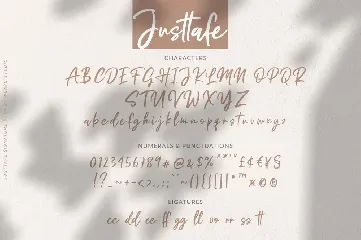 Justtafe
CHARACTERS
ABCDEFGHIJKLMN OPQR
STUVWXYZ
abcdefghijklmnopqrstuvwxyz
NUMERALS & PUNCTUATIONS
0123456789#@&$%"*"£¢€¥§
LIGATURES
ee dd cc ff gg ll oo rr ss tt